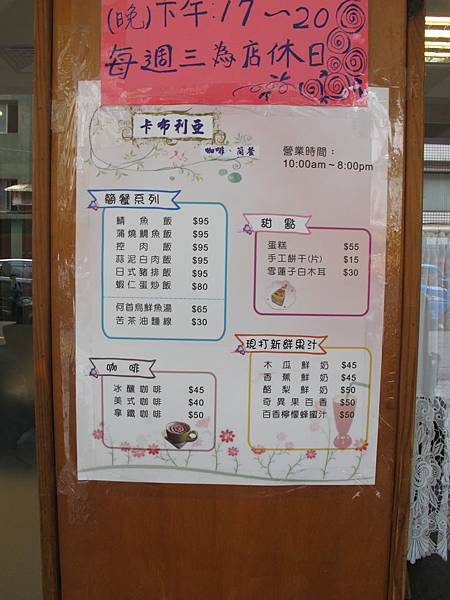 (晚)下午:17～20
每週三為店休日
卡布利亞
咖啡、簡餐
營業時間：
10:00am～8:00pm
簡餐系列
鯖魚飯 $95
蒲燒鯛魚飯 $95
控肉飯 $95
蒜泥白肉飯 $95
日式豬排飯 $95
蝦仁蛋炒飯 $80
何首烏鮮魚湯 $65
苦茶油麵線 $30
甜點
蛋糕 $55
手工餅干(片) $15
雪蓮子白木耳 $30
咖啡
冰釀咖啡 $45
美式咖啡 $40
拿鐵咖啡 $50
現打新鮮果汁
木瓜鮮奶 $45
香蕉鮮奶 $45
酪梨鮮奶 $50
奇異果百香 $50
百香檸檬蜂蜜汁 $50